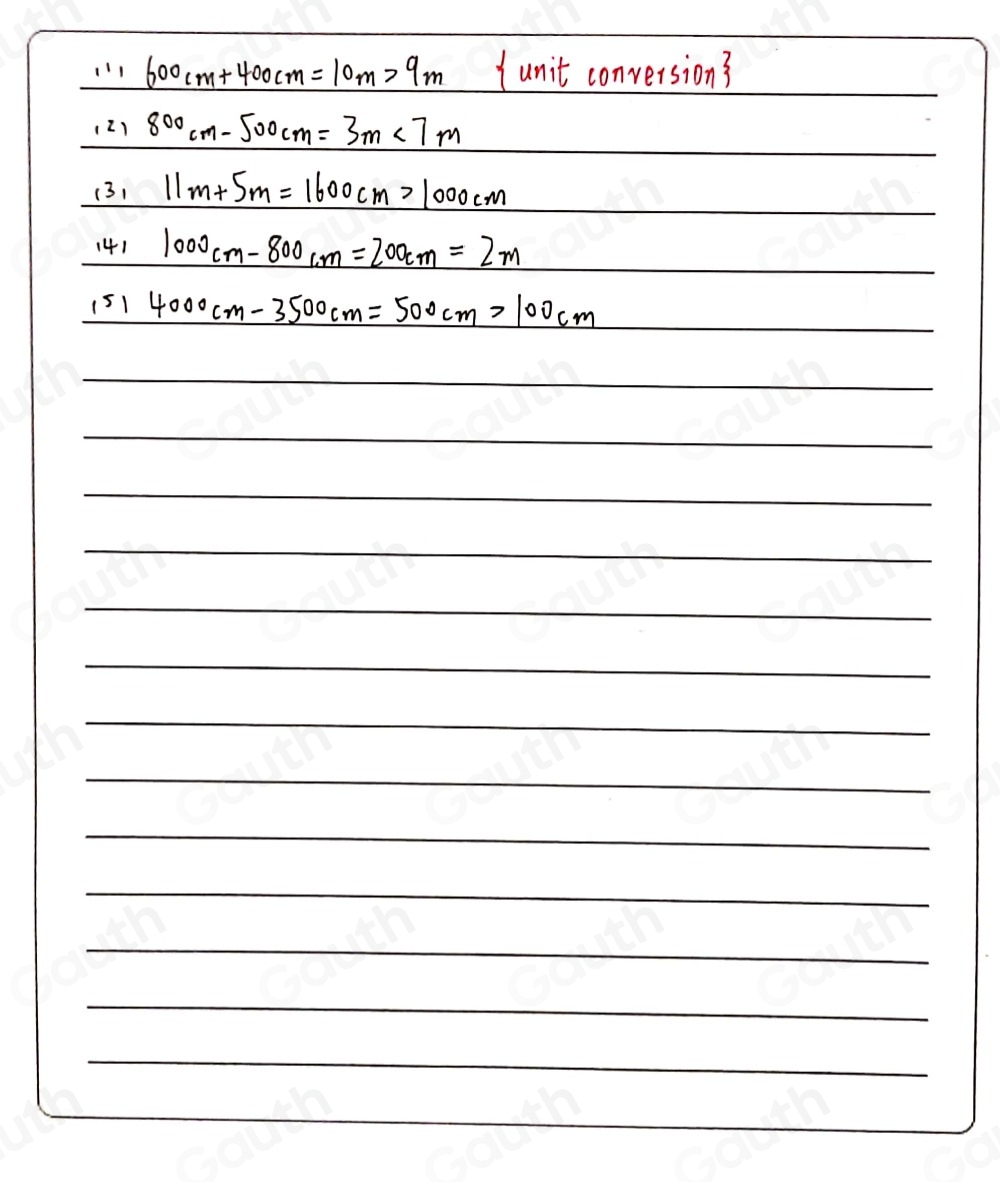 (1) 600cm+400cm=10m>9m {unit conversion}
(2) 800cm-500cm=3m<7m
(3) 11m+5m=1600cm>1000cm
(4) 1000cm-800cm=200cm=2m
(5) 4000cm-3500cm=500cm>100cm